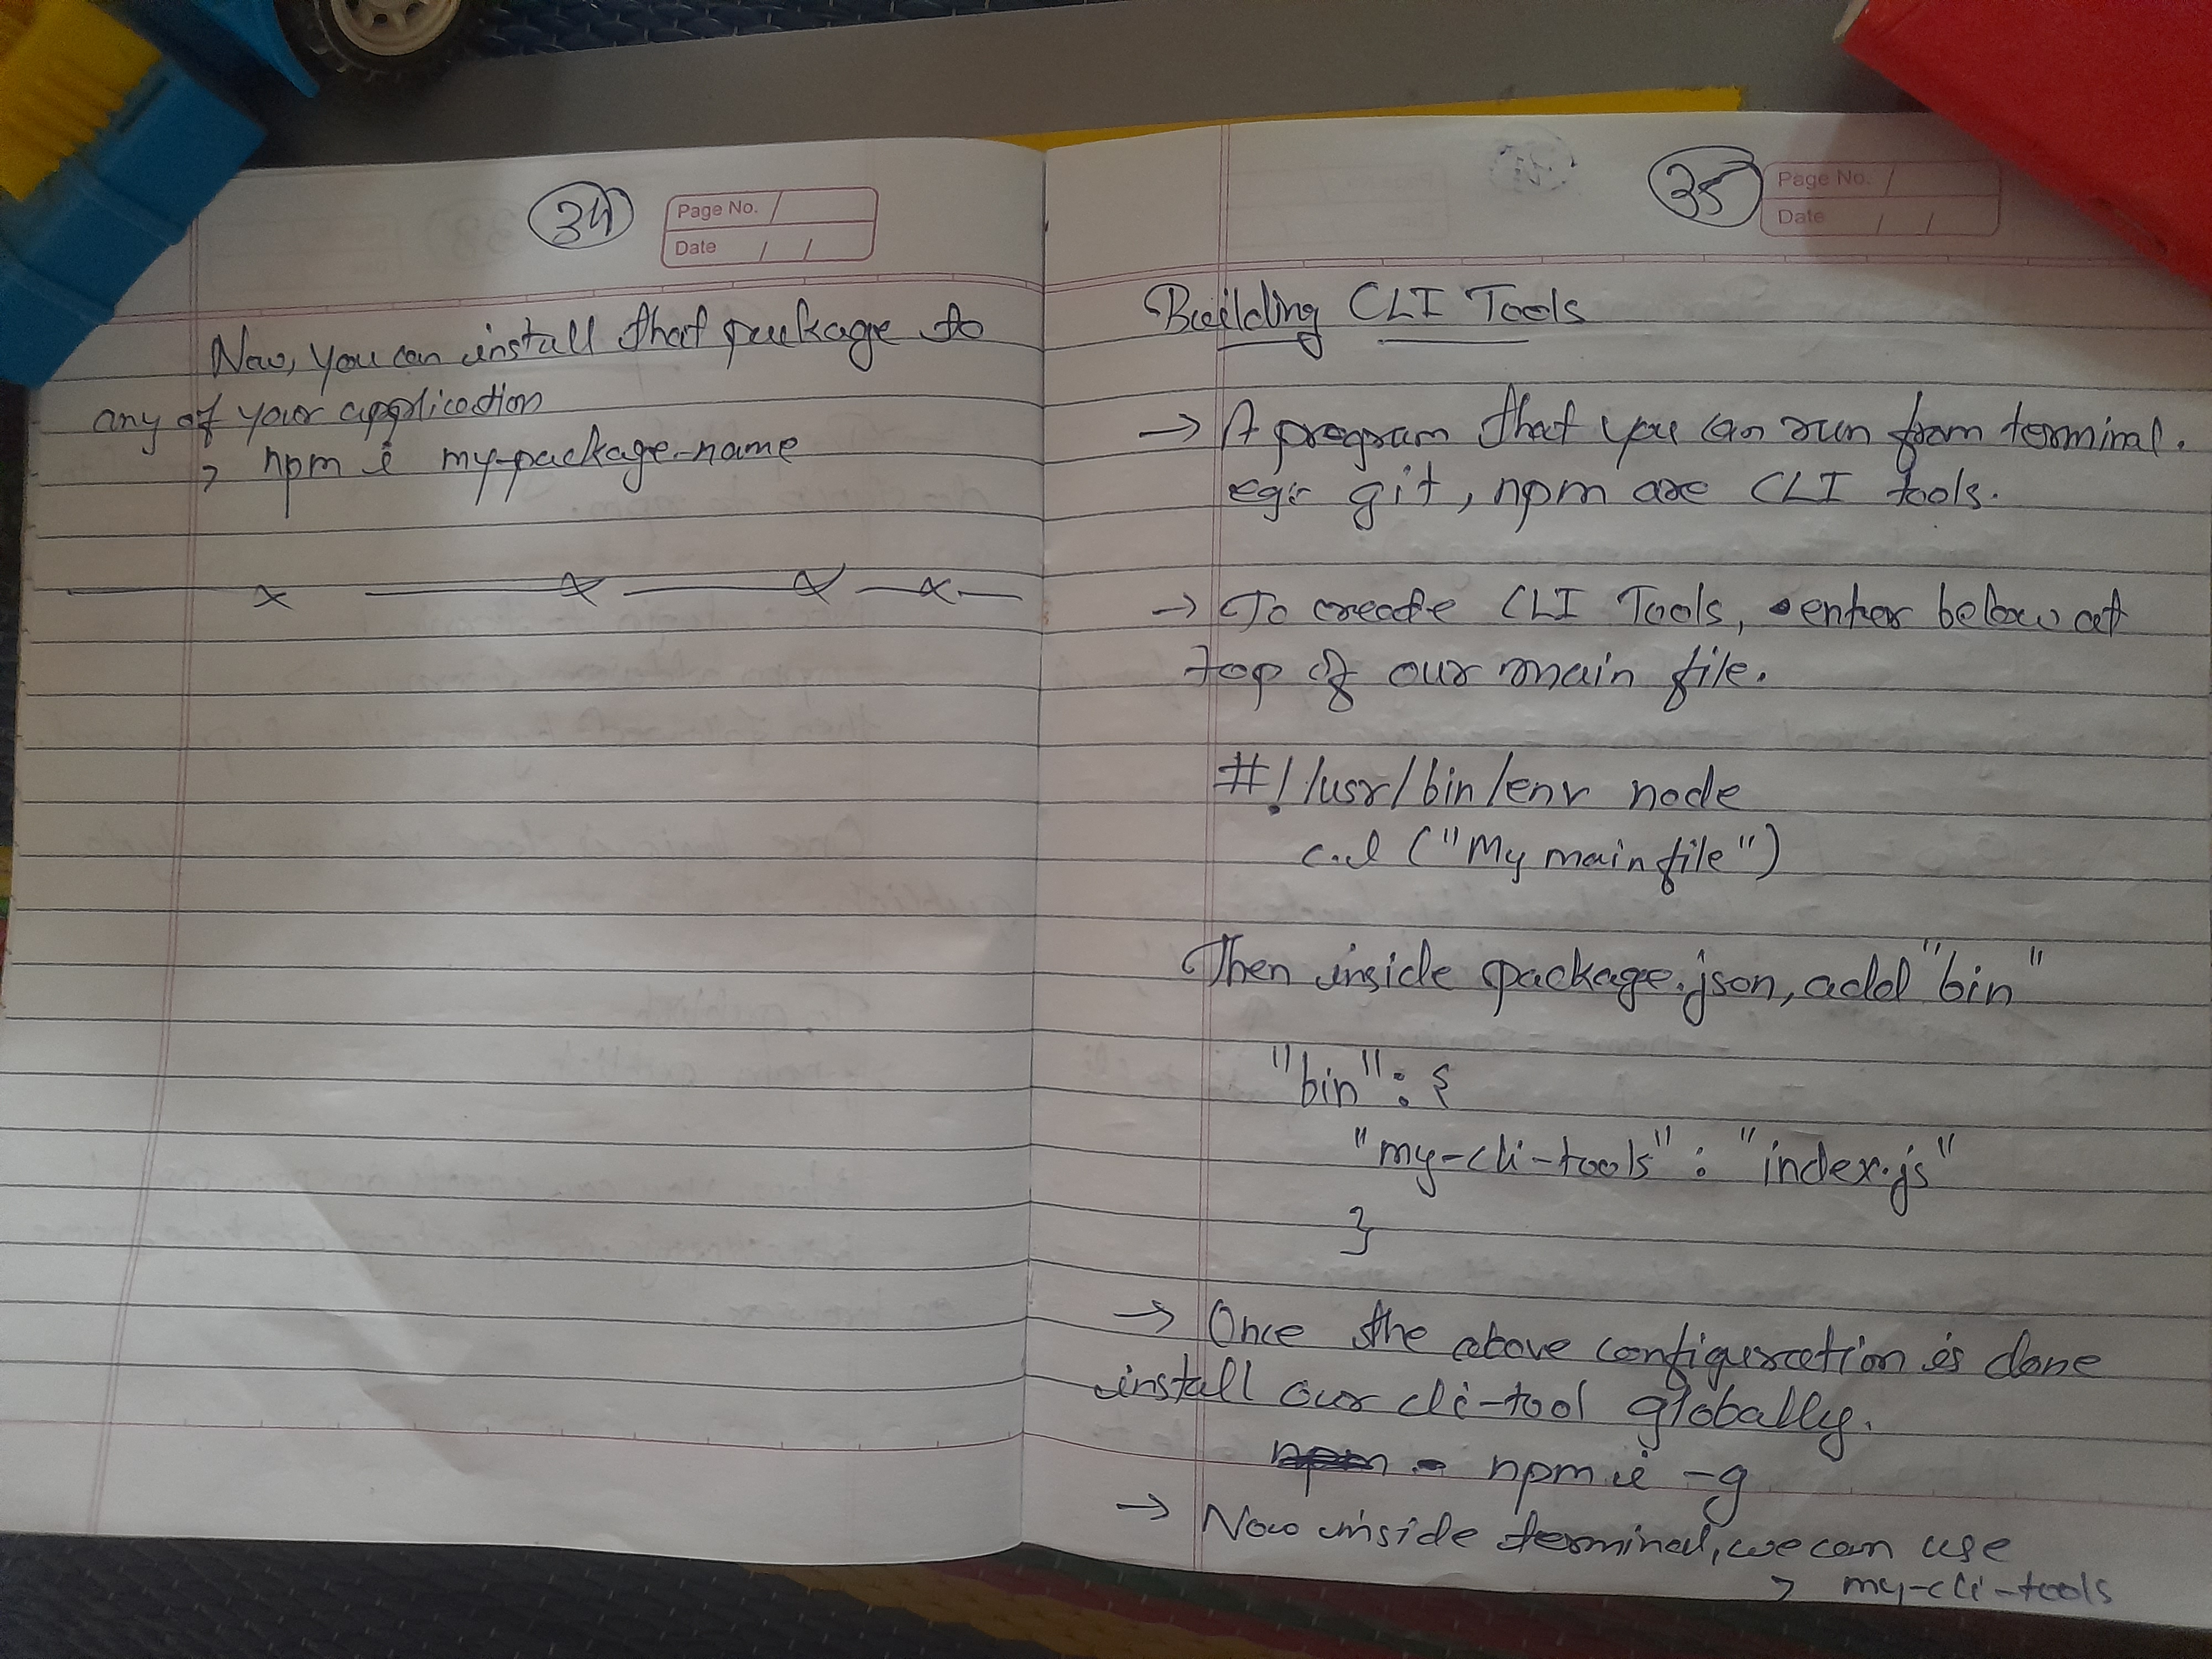 34
Page No.
Date / /
Now, you can install that package to
any of your application
> npm i my-package-name
x x x x
35
Page No.
Date / /
Building CLI Tools
→ A program that you can run from terminal.
eg:- git, npm are CLI tools.
→ To create CLI Tools, enter below at
top of our main file.
#!/usr/bin/env node
c.l ("My main file")
Then inside package.json, add "bin"
"bin": {
"my-cli-tools": "index.js"
}
→ Once the above configuration is done
install our cli-tool globally.
npm i -g
→ Now inside terminal, we can use
> my-cli-tools